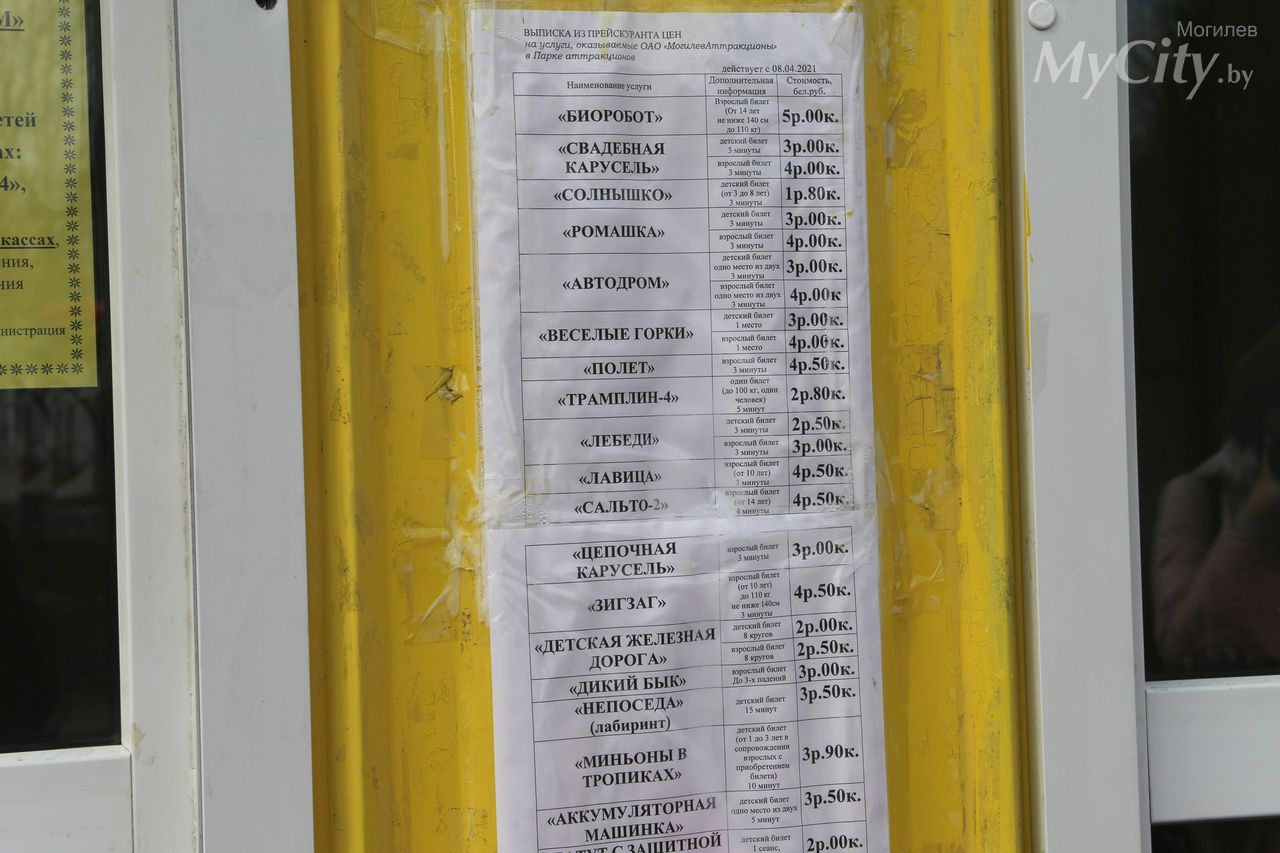 Могилев
MyCity.by
М»
етей
ах:
4»,
кассах,
ения,
ния
министрация
ВЫПИСКА ИЗ ПРЕЙСКУРАНТА ЦЕН
на услуги, оказываемые ОАО «МогилевАттракционы»
в Парке аттракционов
действует с 08.04.2021
Наименование услуги
Дополнительная
информация
Стоимость,
бел.руб.
«БИОРОБОТ»
Взрослый билет
(От 14 лет
не ниже 140 см
до 110 кг)
5р.00к.
«СВАДЕБНАЯ
КАРУСЕЛЬ»
детский билет
3 минуты
3р.00к.
взрослый билет
3 минуты
4р.00к.
«СОЛНЫШКО»
детский билет
(от 3 до 8 лет)
3 минуты
1р.80к.
«РОМАШКА»
детский билет
3 минуты
3р.00к.
взрослый билет
3 минуты
4р.00к.
«АВТОДРОМ»
детский билет
одно место из двух
3 минуты
3р.00к.
взрослый билет
одно место из двух
3 минуты
4р.00к
«ВЕСЕЛЫЕ ГОРКИ»
детский билет
1 место
3р.00к.
взрослый билет
1 место
4р.00к.
«ПОЛЕТ»
взрослый билет
3 минуты
4р.50к.
«ТРАМПЛИН-4»
один билет
(до 100 кг, один
человек)
5 минут
2р.80к.
«ЛЕБЕДИ»
детский билет
3 минуты
2р.50к.
взрослый билет
3 минуты
3р.00к.
«ЛАВИЦА»
взрослый билет
(от 10 лет)
3 минуты
4р.50к.
«САЛЬТО-2»
взрослый билет
(от 14 лет)
4 минуты
4р.50к.
«ЦЕПОЧНАЯ
КАРУСЕЛЬ»
взрослый билет
3 минуты
3р.00к.
«ЗИГЗАГ»
взрослый билет
(от 10 лет)
до 110 кг
не ниже 140см
3 минуты
4р.50к.
«ДЕТСКАЯ ЖЕЛЕЗНАЯ
ДОРОГА»
детский билет
8 кругов
2р.00к.
взрослый билет
8 кругов
2р.50к.
«ДИКИЙ БЫК»
взрослый билет
До 3-х падений
3р.00к.
«НЕПОСЕДА»
(лабиринт)
детский билет
15 минут
3р.50к.
«МИНЬОНЫ В
ТРОПИКАХ»
детский билет
(от 1 до 3 лет в
сопровождении
взрослых с
приобретением
билета)
10 минут
3р.90к.
«АККУМУЛЯТОРНАЯ
МАШИНКА»
детский билет
одно место из двух
5 минут
3р.50к.
С ЗАЩИТНОЙ
детский билет
1 сеанс,
2р.00к.